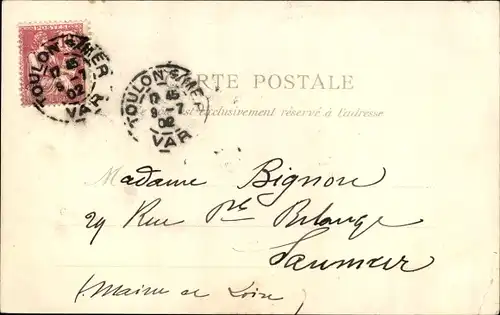 POSTES
TOULON S/MER
17 45
9 -7
02
VAR
TOULON S/MER
17 45
9 -7
02
VAR
CARTE POSTALE
exclusivement réservé à l'adresse
Madame Bignon
29 Rue
Saumur
(Maine et Loire)